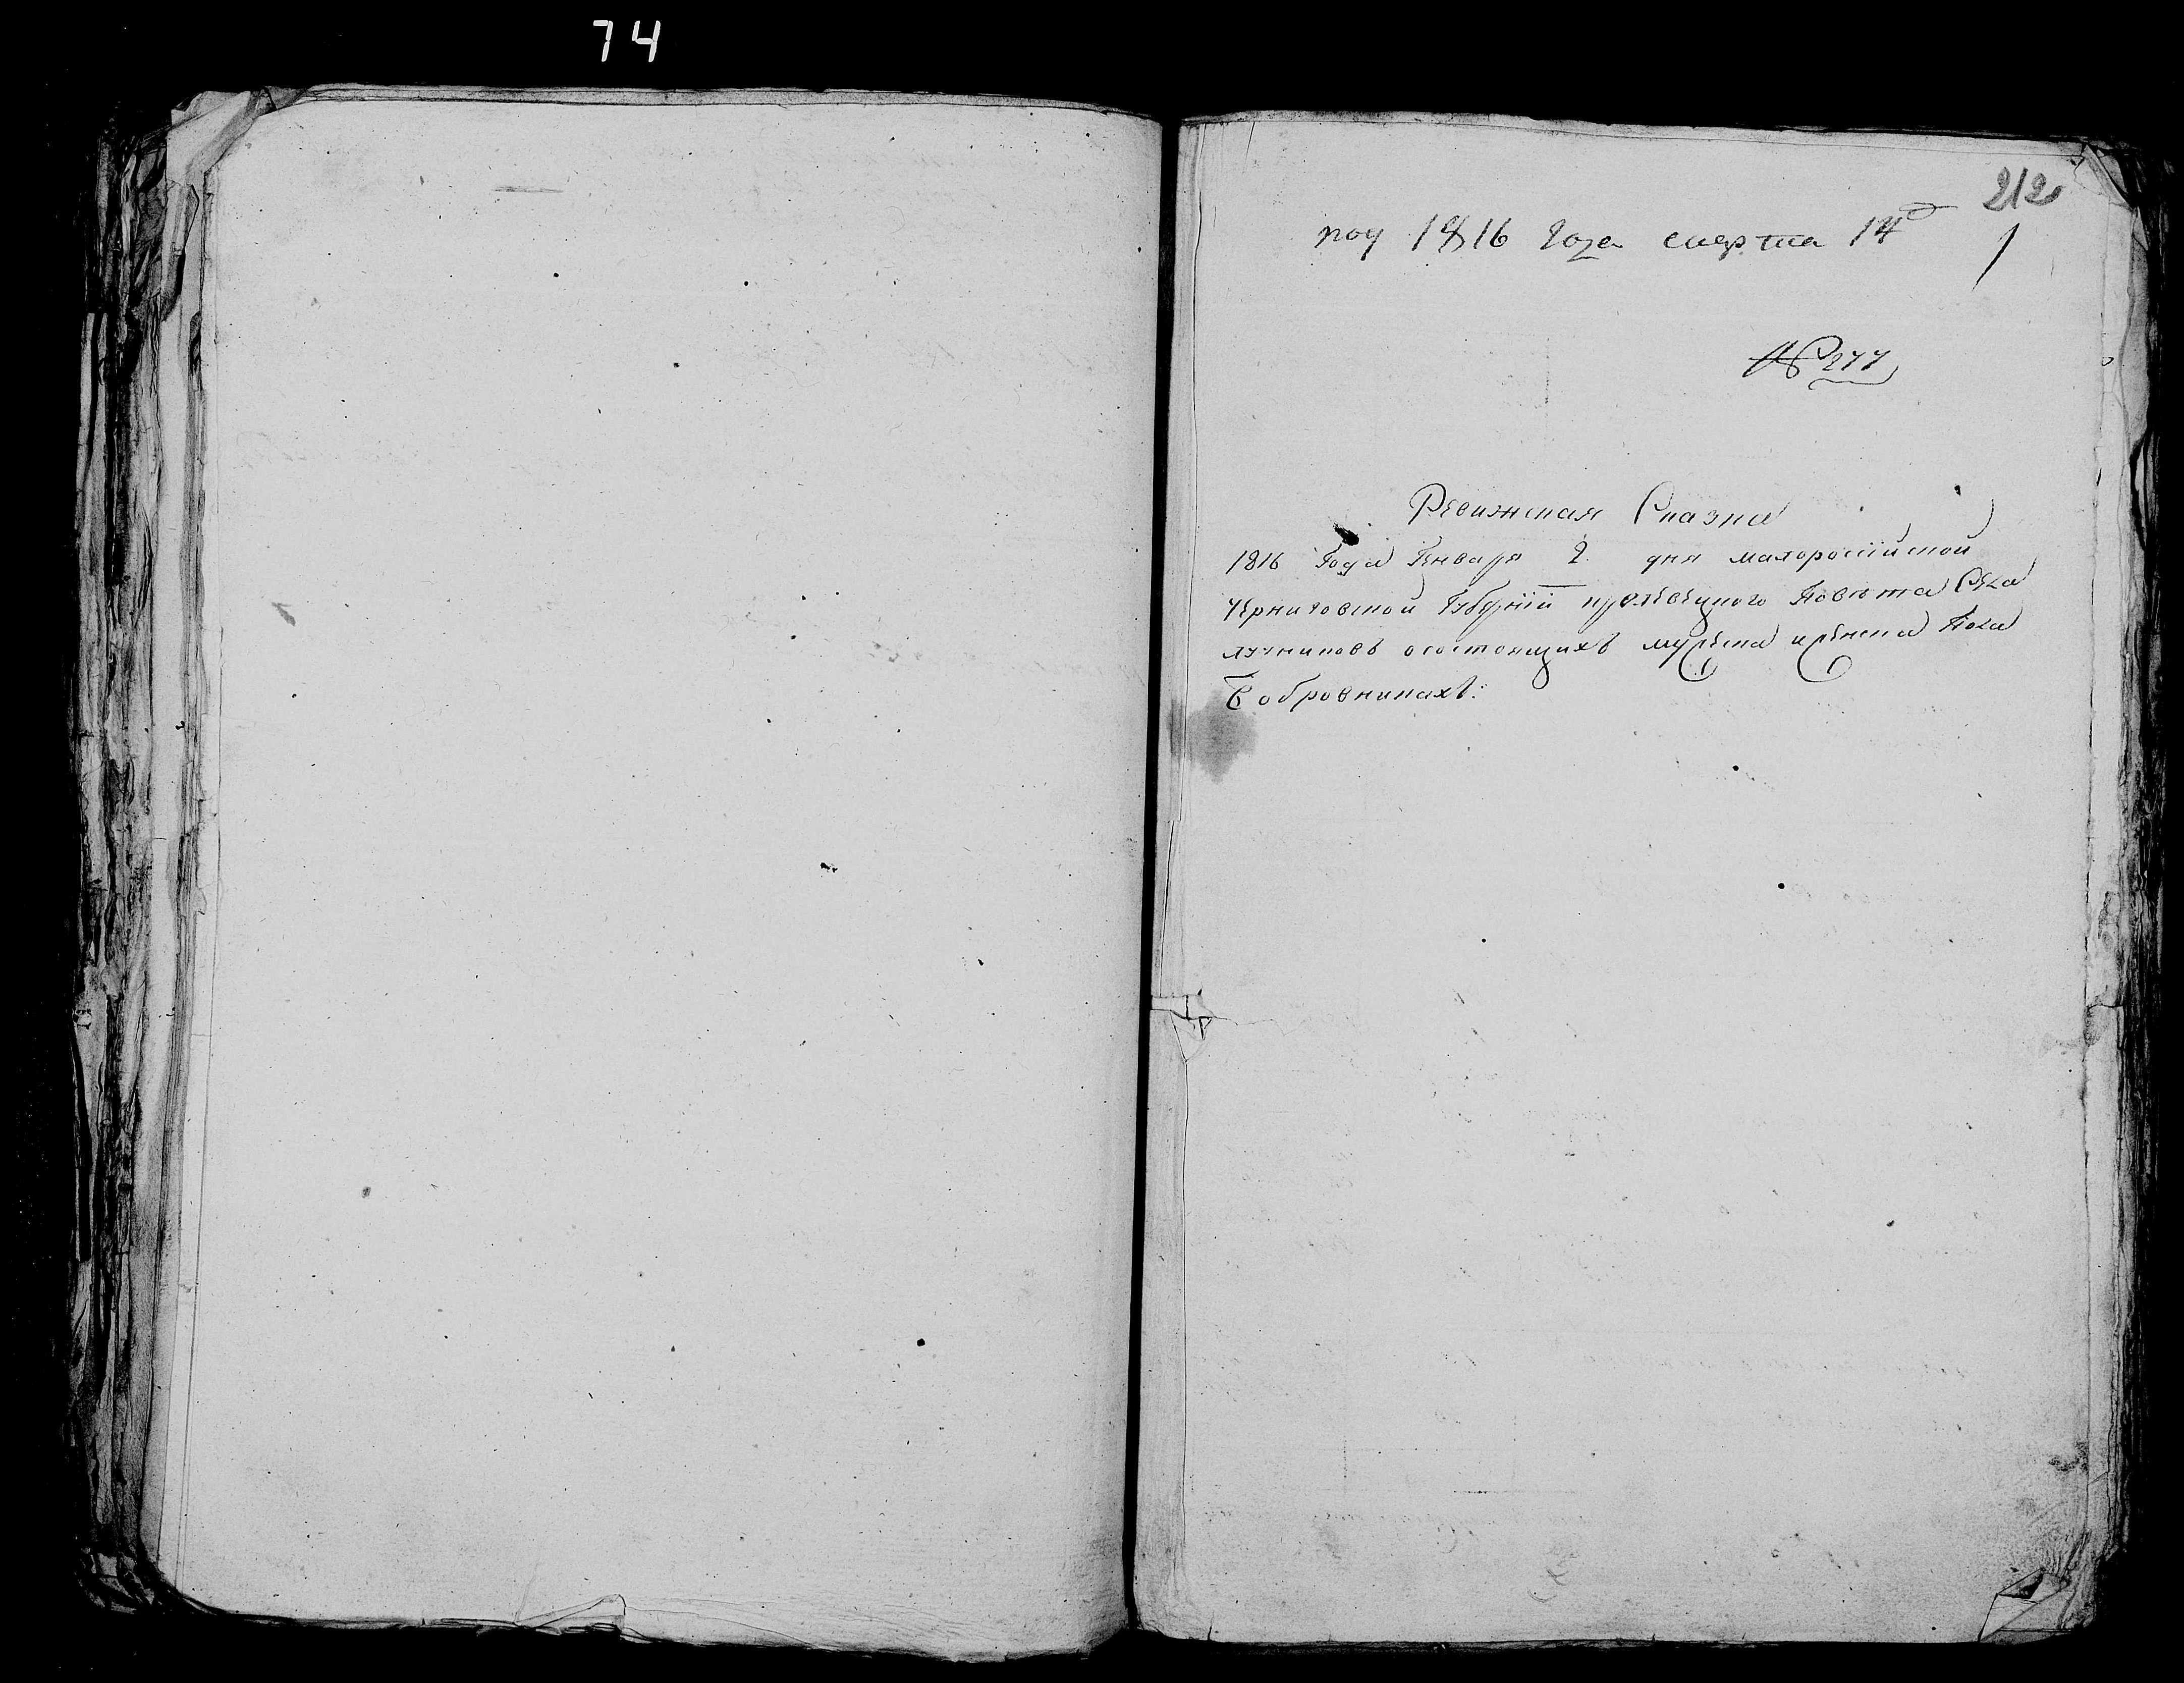 74
212
под 1816 года марта 14д
1
№ 277
Ревижская Сказка
1816 Года Генваря 2 дня малоросiйской
Черниговской Губернiи кролевецкого Повѣта Села
лучниковъ осостоящихъ мужеска иженска Пола
Бобровниках: